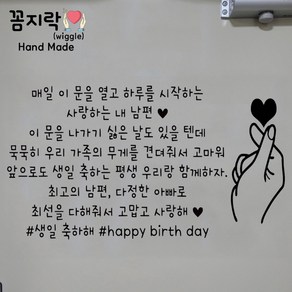 꼼지락
(wiggle)
Hand Made
매일 이 문을 열고 하루를 시작하는
사랑하는 내 남편 ♥
이 문을 나가기 싫은 날도 있을 텐데
묵묵히 우리 가족의 무게를 견뎌줘서 고마워
앞으로도 생일 축하는 평생 우리랑 함께하자.
최고의 남편, 다정한 아빠로
최선을 다해줘서 고맙고 사랑해 ♥
#생일 축하해 #happy birth day